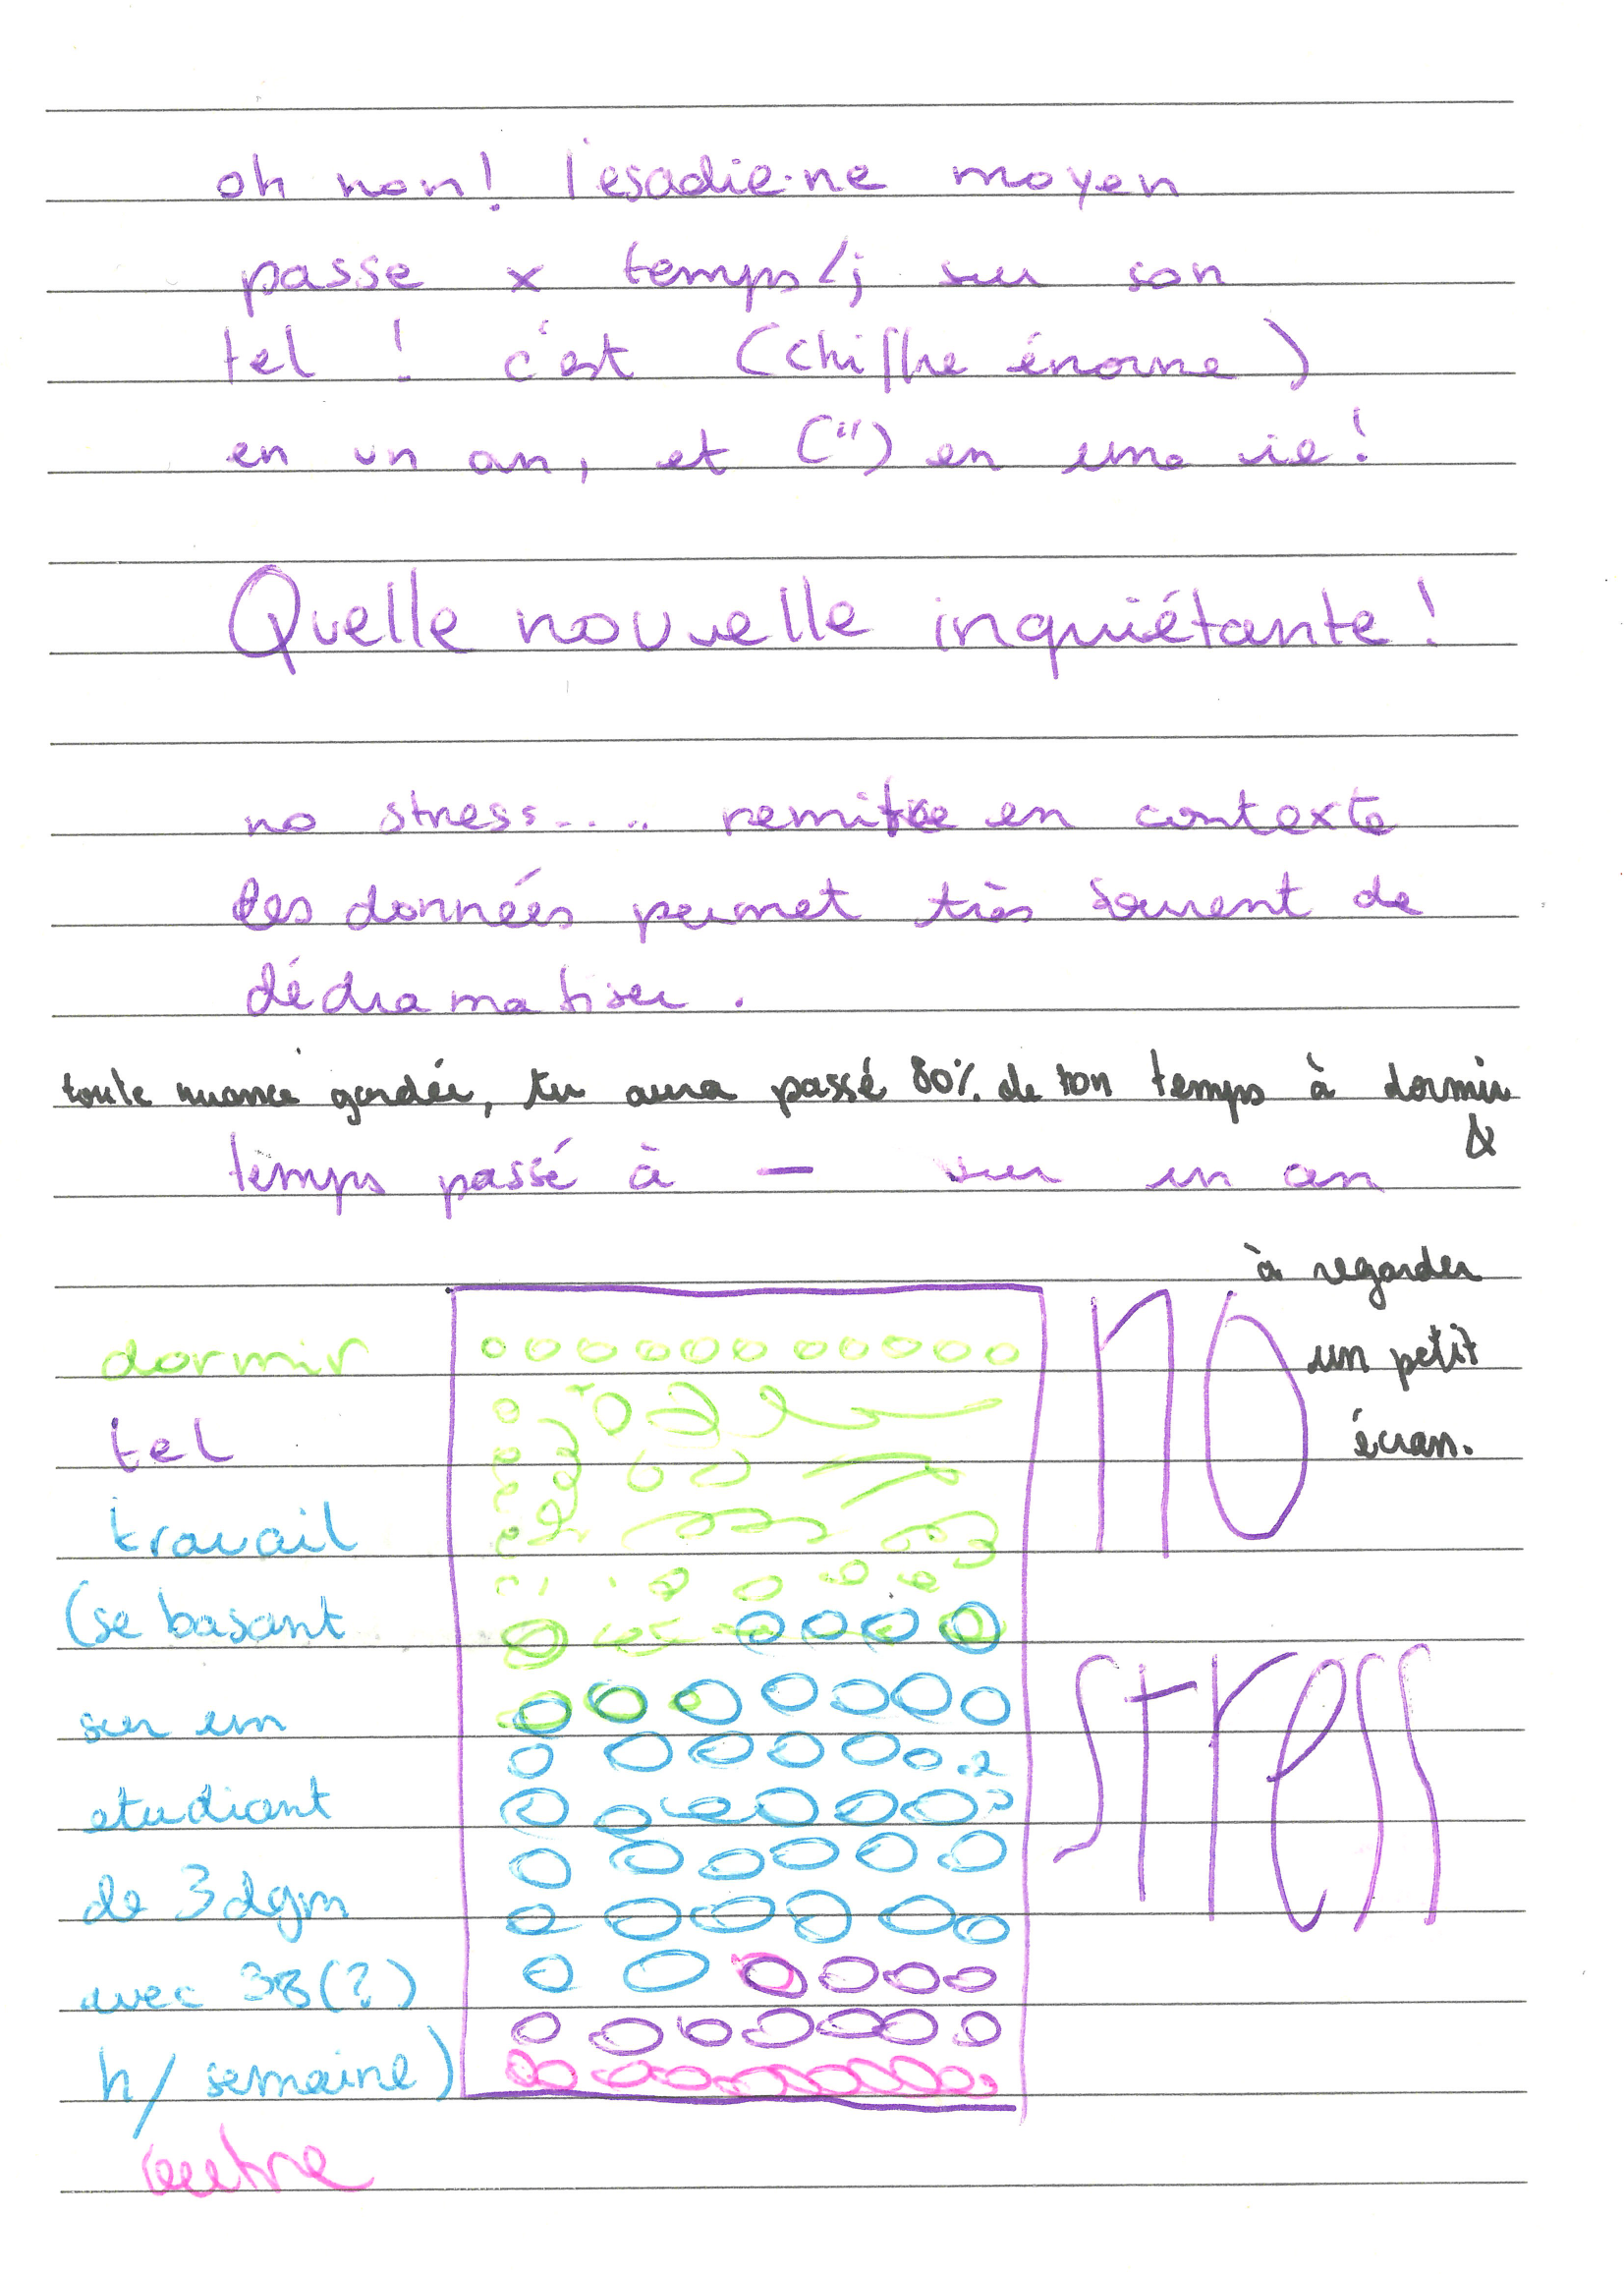 oh non! l'esadie·ne moyen
passe x temps/j sur son
tel ! c'est (chiffre énorme)
en un an, et (") en une vie!
Quelle nouvelle inquiétante!
no stress.... remitre en contexte
les données permet très souvent de
dédramatiser.
toute nuance gardée, tu aura passé 80% de ton temps à dormir
&
temps passé à — sur un an
à regarder
un petit
écran.
NO
stress
dormir
tel
travail
(se basant
sur un
etudiant
de 3dgm
avec 38(?)
h/ semaine)
autre